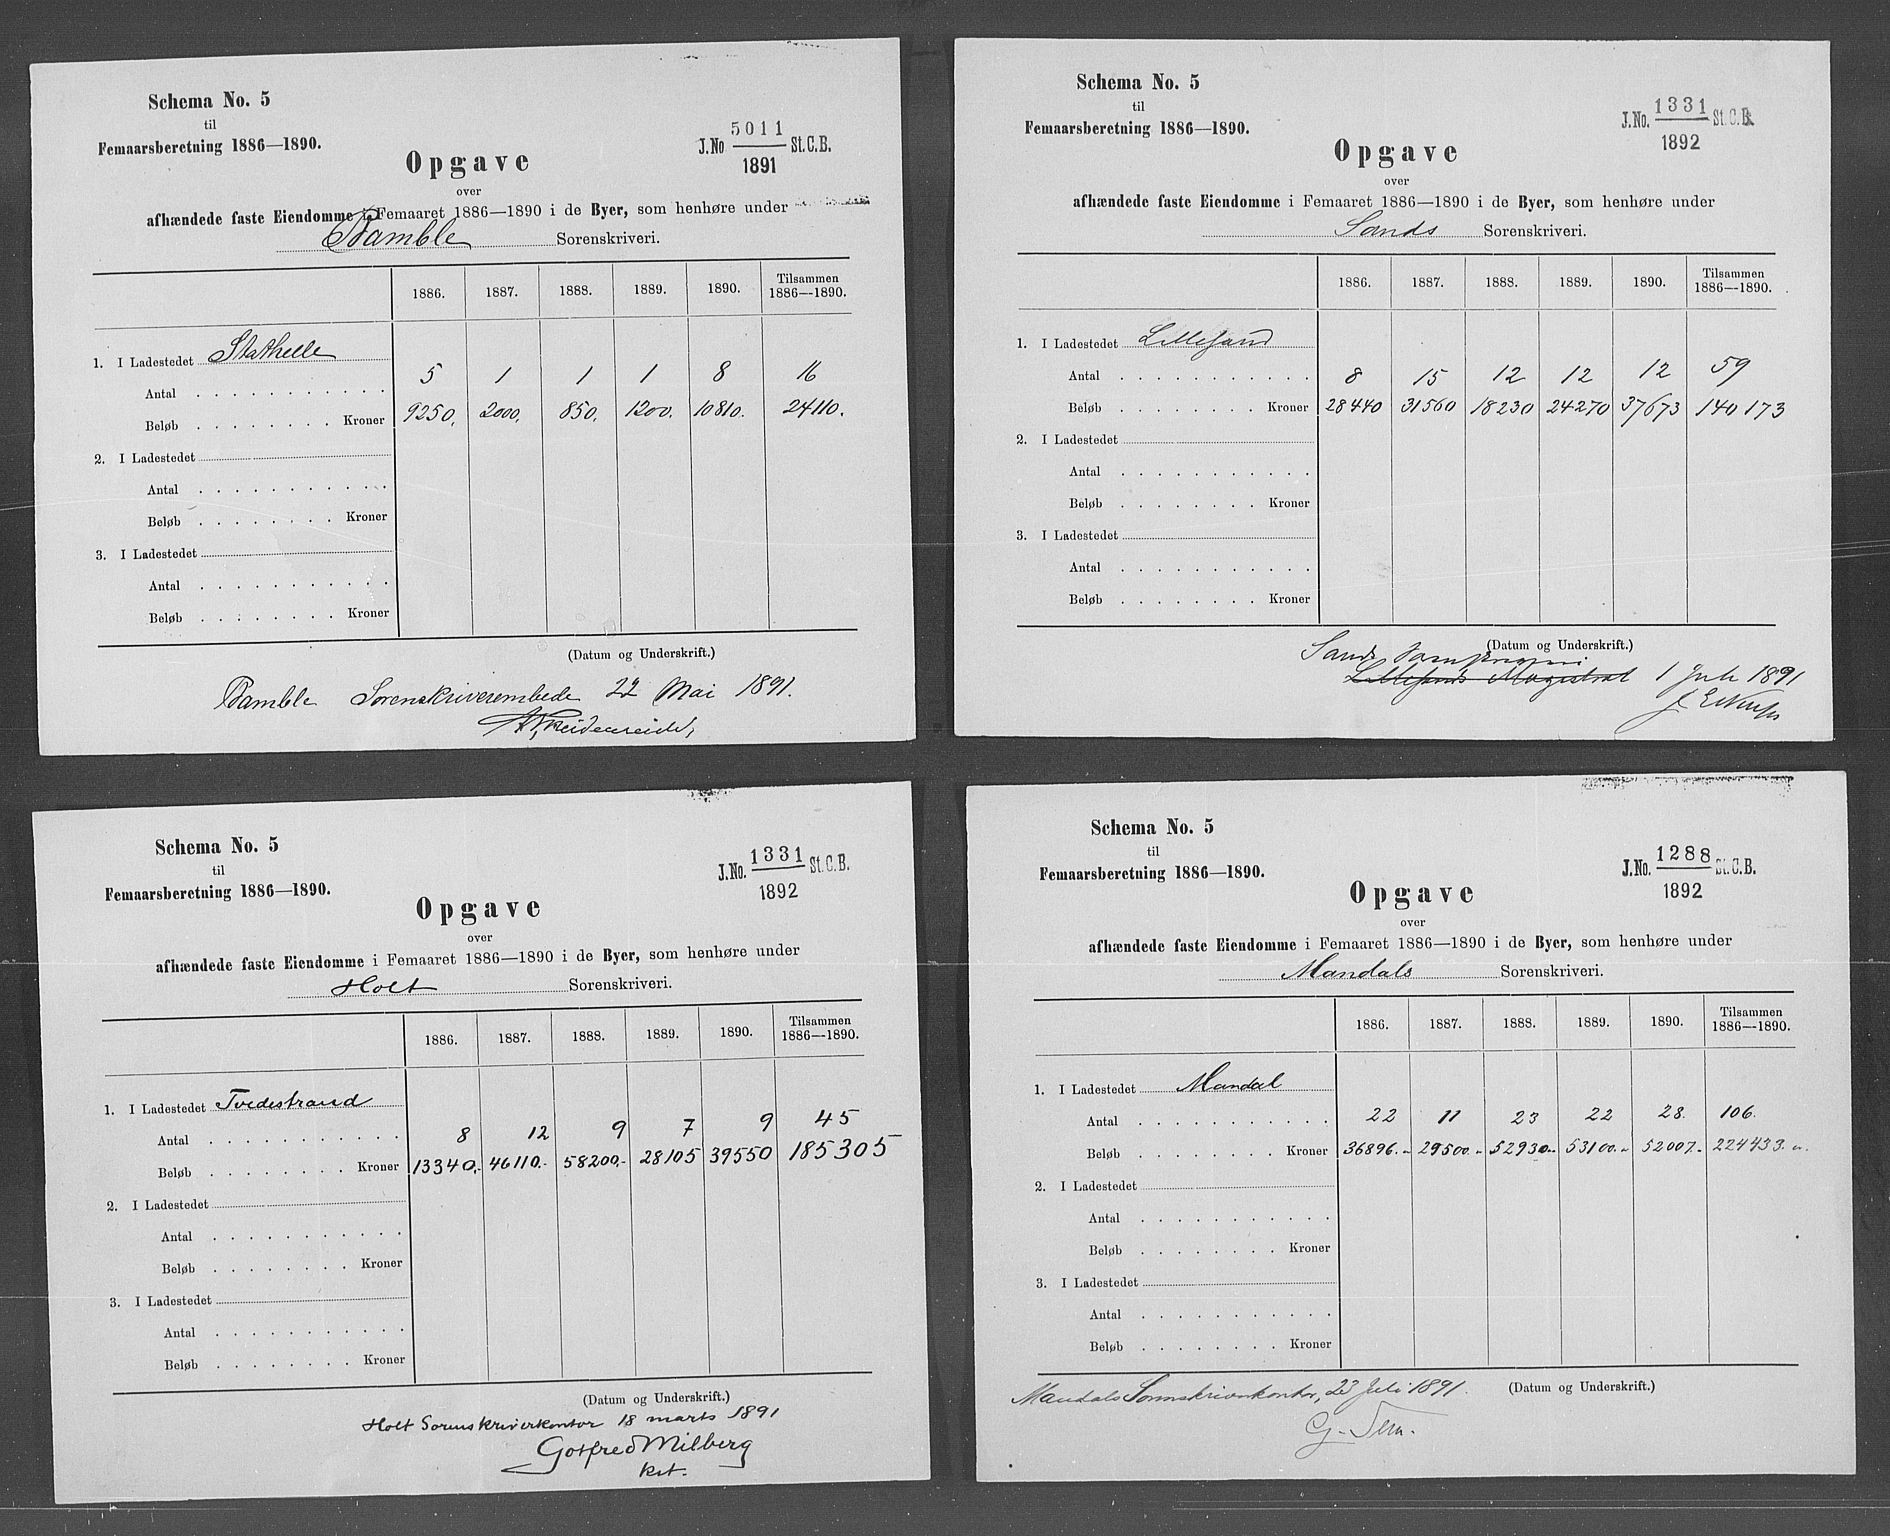 Schema No. 5
til
Femaarsberetning 1886—1890.
J.No 5011 St.C.B.
1891
Opgave
over
afhændede faste Eiendomme i Femaaret 1886—1890 i de Byer, som henhøre under
Bamble Sorenskriveri.
1886. 1887. 1888. 1889. 1890. Tilsammen 1886—1890.
1. I Ladestedet Stathelle
Antal 5 1 1 1 8 16
Beløb Kroner 9250, 2000, 850, 1200, 10810. 24110.
2. I Ladestedet
Antal
Beløb Kroner
3. I Ladestedet
Antal
Beløb Kroner
(Datum og Underskrift.)
Bamble Sorenskriverembede 22 Mai 1891.
Schema No. 5
til
Femaarsberetning 1886—1890.
J.No. 1331 St.C.B.
1892
Opgave
over
afhændede faste Eiendomme i Femaaret 1886—1890 i de Byer, som henhøre under
Sands Sorenskriveri.
1886. 1887. 1888. 1889. 1890. Tilsammen 1886—1890.
1. I Ladestedet Lillesand
Antal 8 15 12 12 12 59
Beløb Kroner 28440 31560 18230 24270 37673 140173
2. I Ladestedet
Antal
Beløb Kroner
3. I Ladestedet
Antal
Beløb Kroner
(Datum og Underskrift.)
Sands
Lillesands Magistrat 1 Juli 1891
Schema No. 5
til
Femaarsberetning 1886—1890.
J.No. 1331 St.C.B.
1892
Opgave
over
afhændede faste Eiendomme i Femaaret 1886—1890 i de Byer, som henhøre under
Holt Sorenskriveri.
1886. 1887. 1888. 1889. 1890. Tilsammen 1886—1890.
1. I Ladestedet Tvedestrand
Antal 8 12 9 7 9 45
Beløb Kroner 13340,- 46110,- 58200,- 28105 39550 185305
2. I Ladestedet
Antal
Beløb Kroner
3. I Ladestedet
Antal
Beløb Kroner
(Datum og Underskrift.)
Holt Sorenskriverkontor 18 marts 1891
Gotfred Milberg
kst.
Schema No. 5
til
Femaarsberetning 1886—1890.
J.No. 1288 St.C.B.
1892
Opgave
over
afhændede faste Eiendomme i Femaaret 1886—1890 i de Byer, som henhøre under
Mandals Sorenskriveri.
1886. 1887. 1888. 1889. 1890. Tilsammen 1886—1890.
1. I Ladestedet Mandal
Antal 22 11 23 22 28. 106.
Beløb Kroner 36896.„ 29500.„ 52930.„ 53100.„ 52007.„ 224433.„
2. I Ladestedet
Antal
Beløb Kroner
3. I Ladestedet
Antal
Beløb Kroner
(Datum og Underskrift.)
Mandals Sorenskriverkontor, 23 Juli 1891.